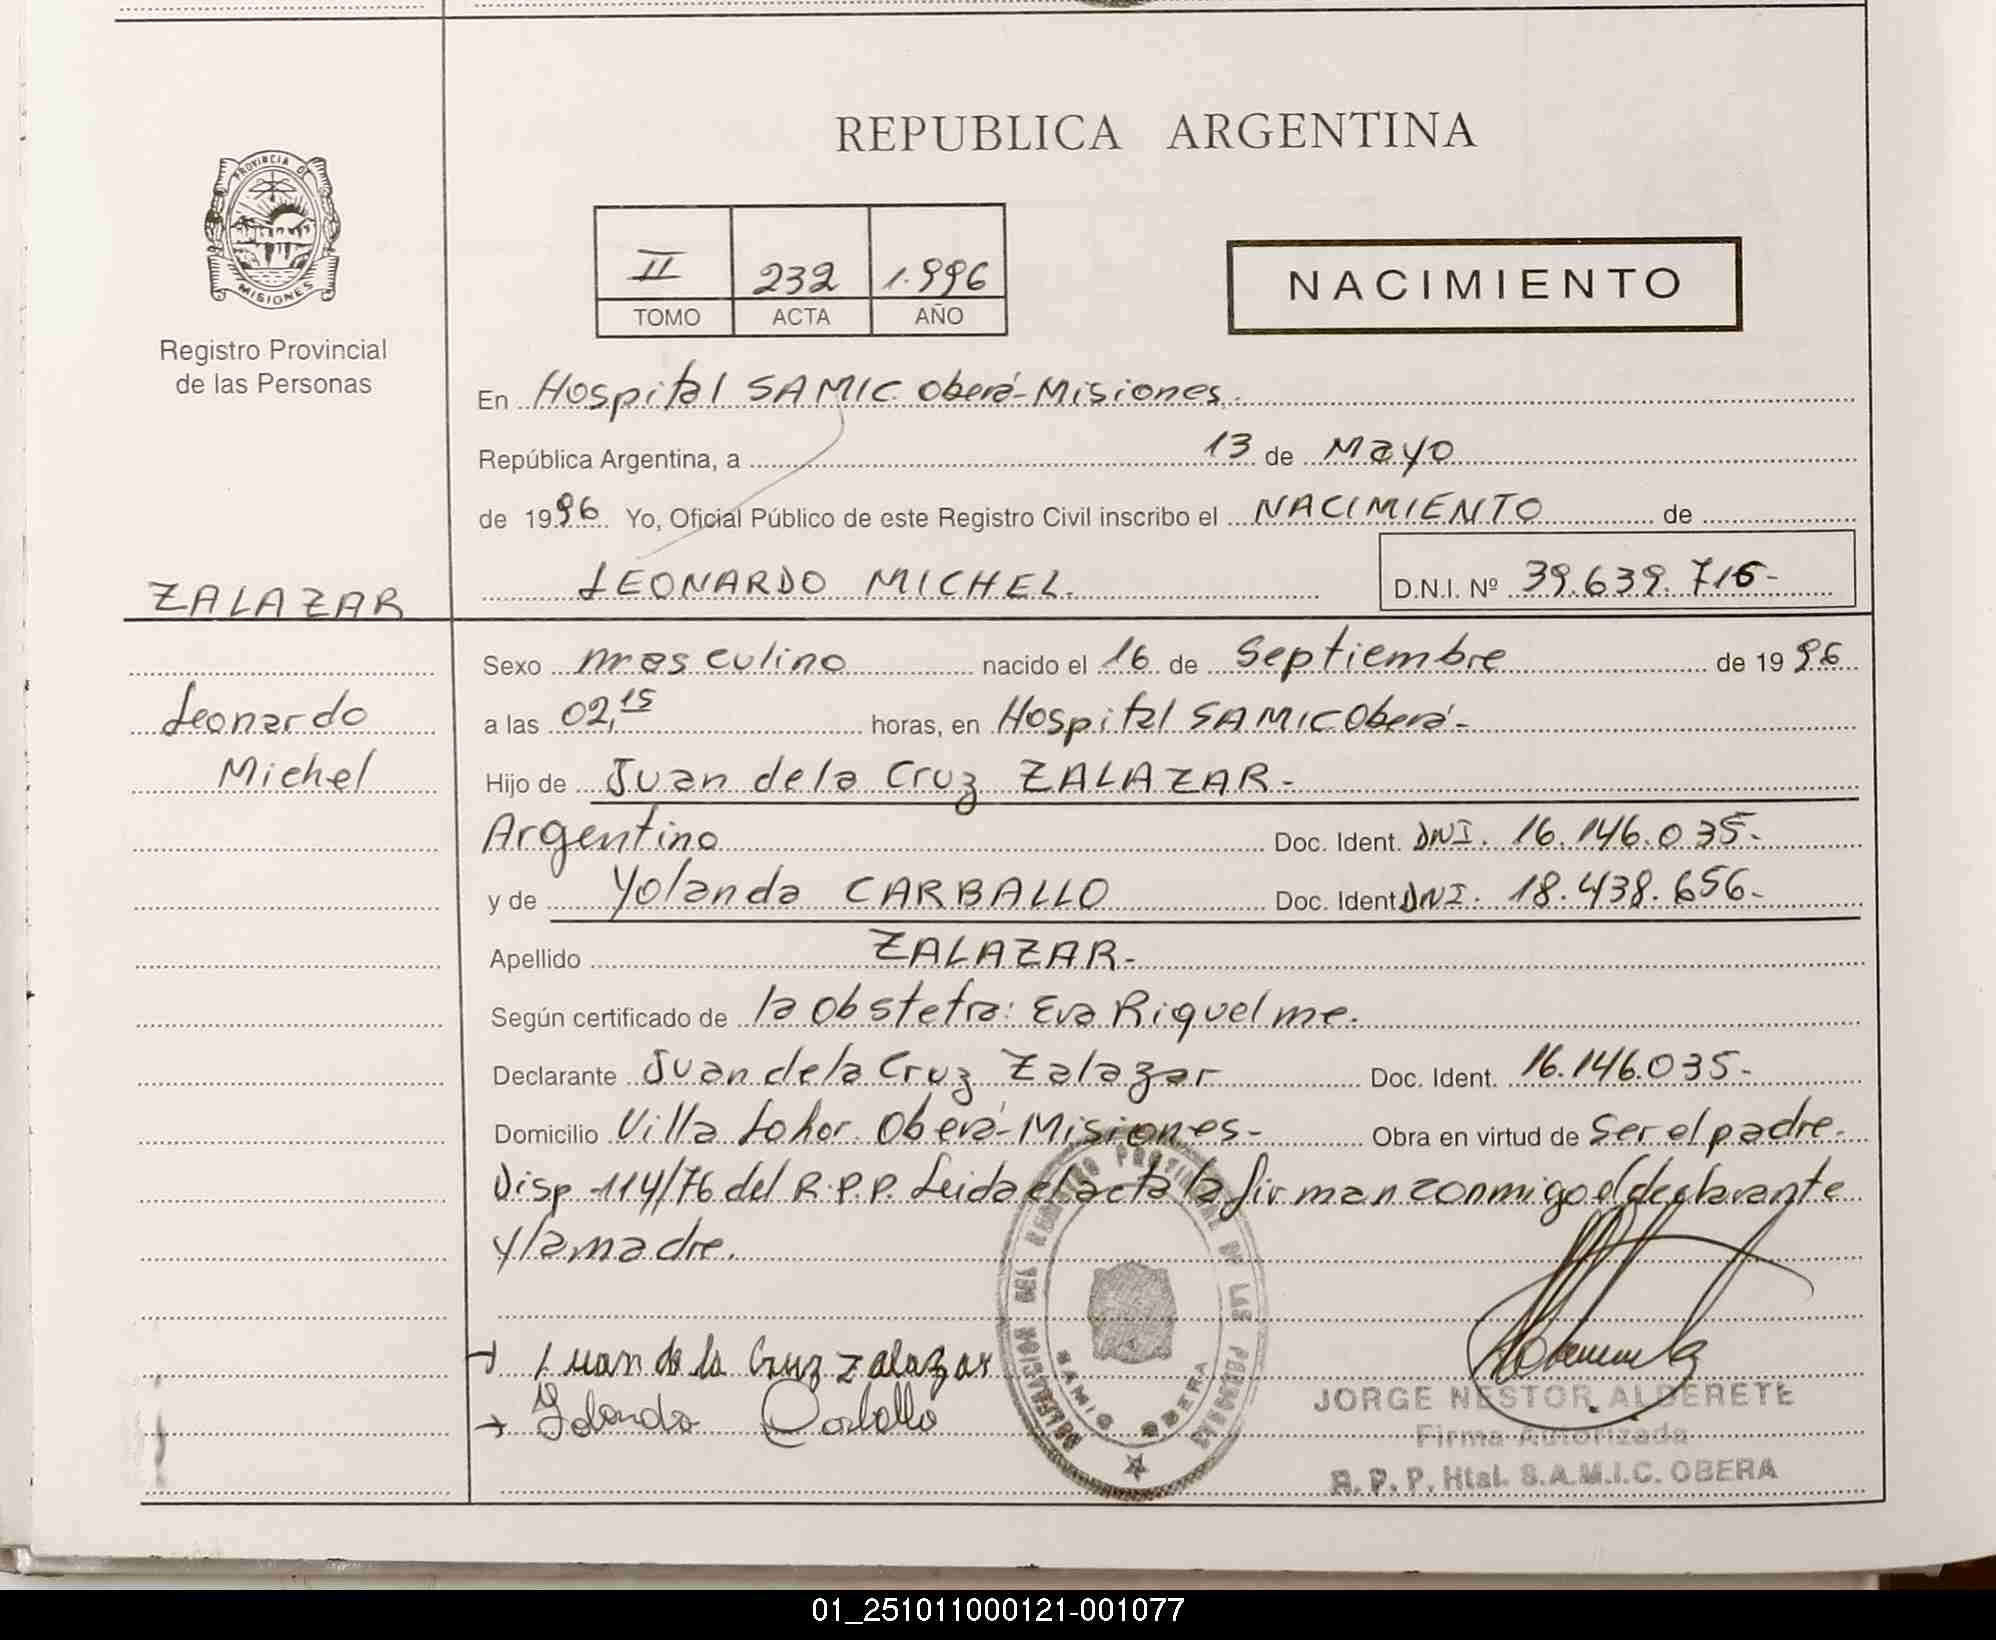 REPUBLICA ARGENTINA
PROVINCIA DE
MISIONES
Registro Provincial
de las Personas
II 232 1.996
TOMO ACTA AÑO
NACIMIENTO
En Hospital SAMIC. Oberá-Misiones.
República Argentina, a 13 de Mayo
de 1996 Yo, Oficial Público de este Registro Civil inscribo el NACIMIENTO de
LEONARDO MICHEL. D.N.I. Nº 39.639.716-
ZALAZAR
Leonardo
Michel
Sexo masculino nacido el 16 de Septiembre de 1996
a las 02,15 horas, en Hospital SAMIC Oberá-
Hijo de Juan de la Cruz ZALAZAR-
Argentino Doc. Ident. DNI. 16.146.035-
y de Yolanda CARBALLO Doc. Ident DNI. 18.438.656-
Apellido ZALAZAR-
Según certificado de la Obstetra: Eva Riquelme.
Declarante Juan de la Cruz Zalazar Doc. Ident. 16.146.035-
Domicilio Villa Lohor. Oberá-Misiones- Obra en virtud de Ser el padre.
Disp 114/76 del R.P.P. Leida el acta la firman conmigo el declarante
y la madre.
Juan de la Cruz Zalazar
Yolanda Carballo
DELEGACION DEL REGISTRO PROVINCIAL DE LAS PERSONAS
SAMIC OBERA
JORGE NESTOR ALDERETE
Firma Autorizada
R. P. P. Htal. S.A.M.I.C. OBERA
01_251011000121-001077